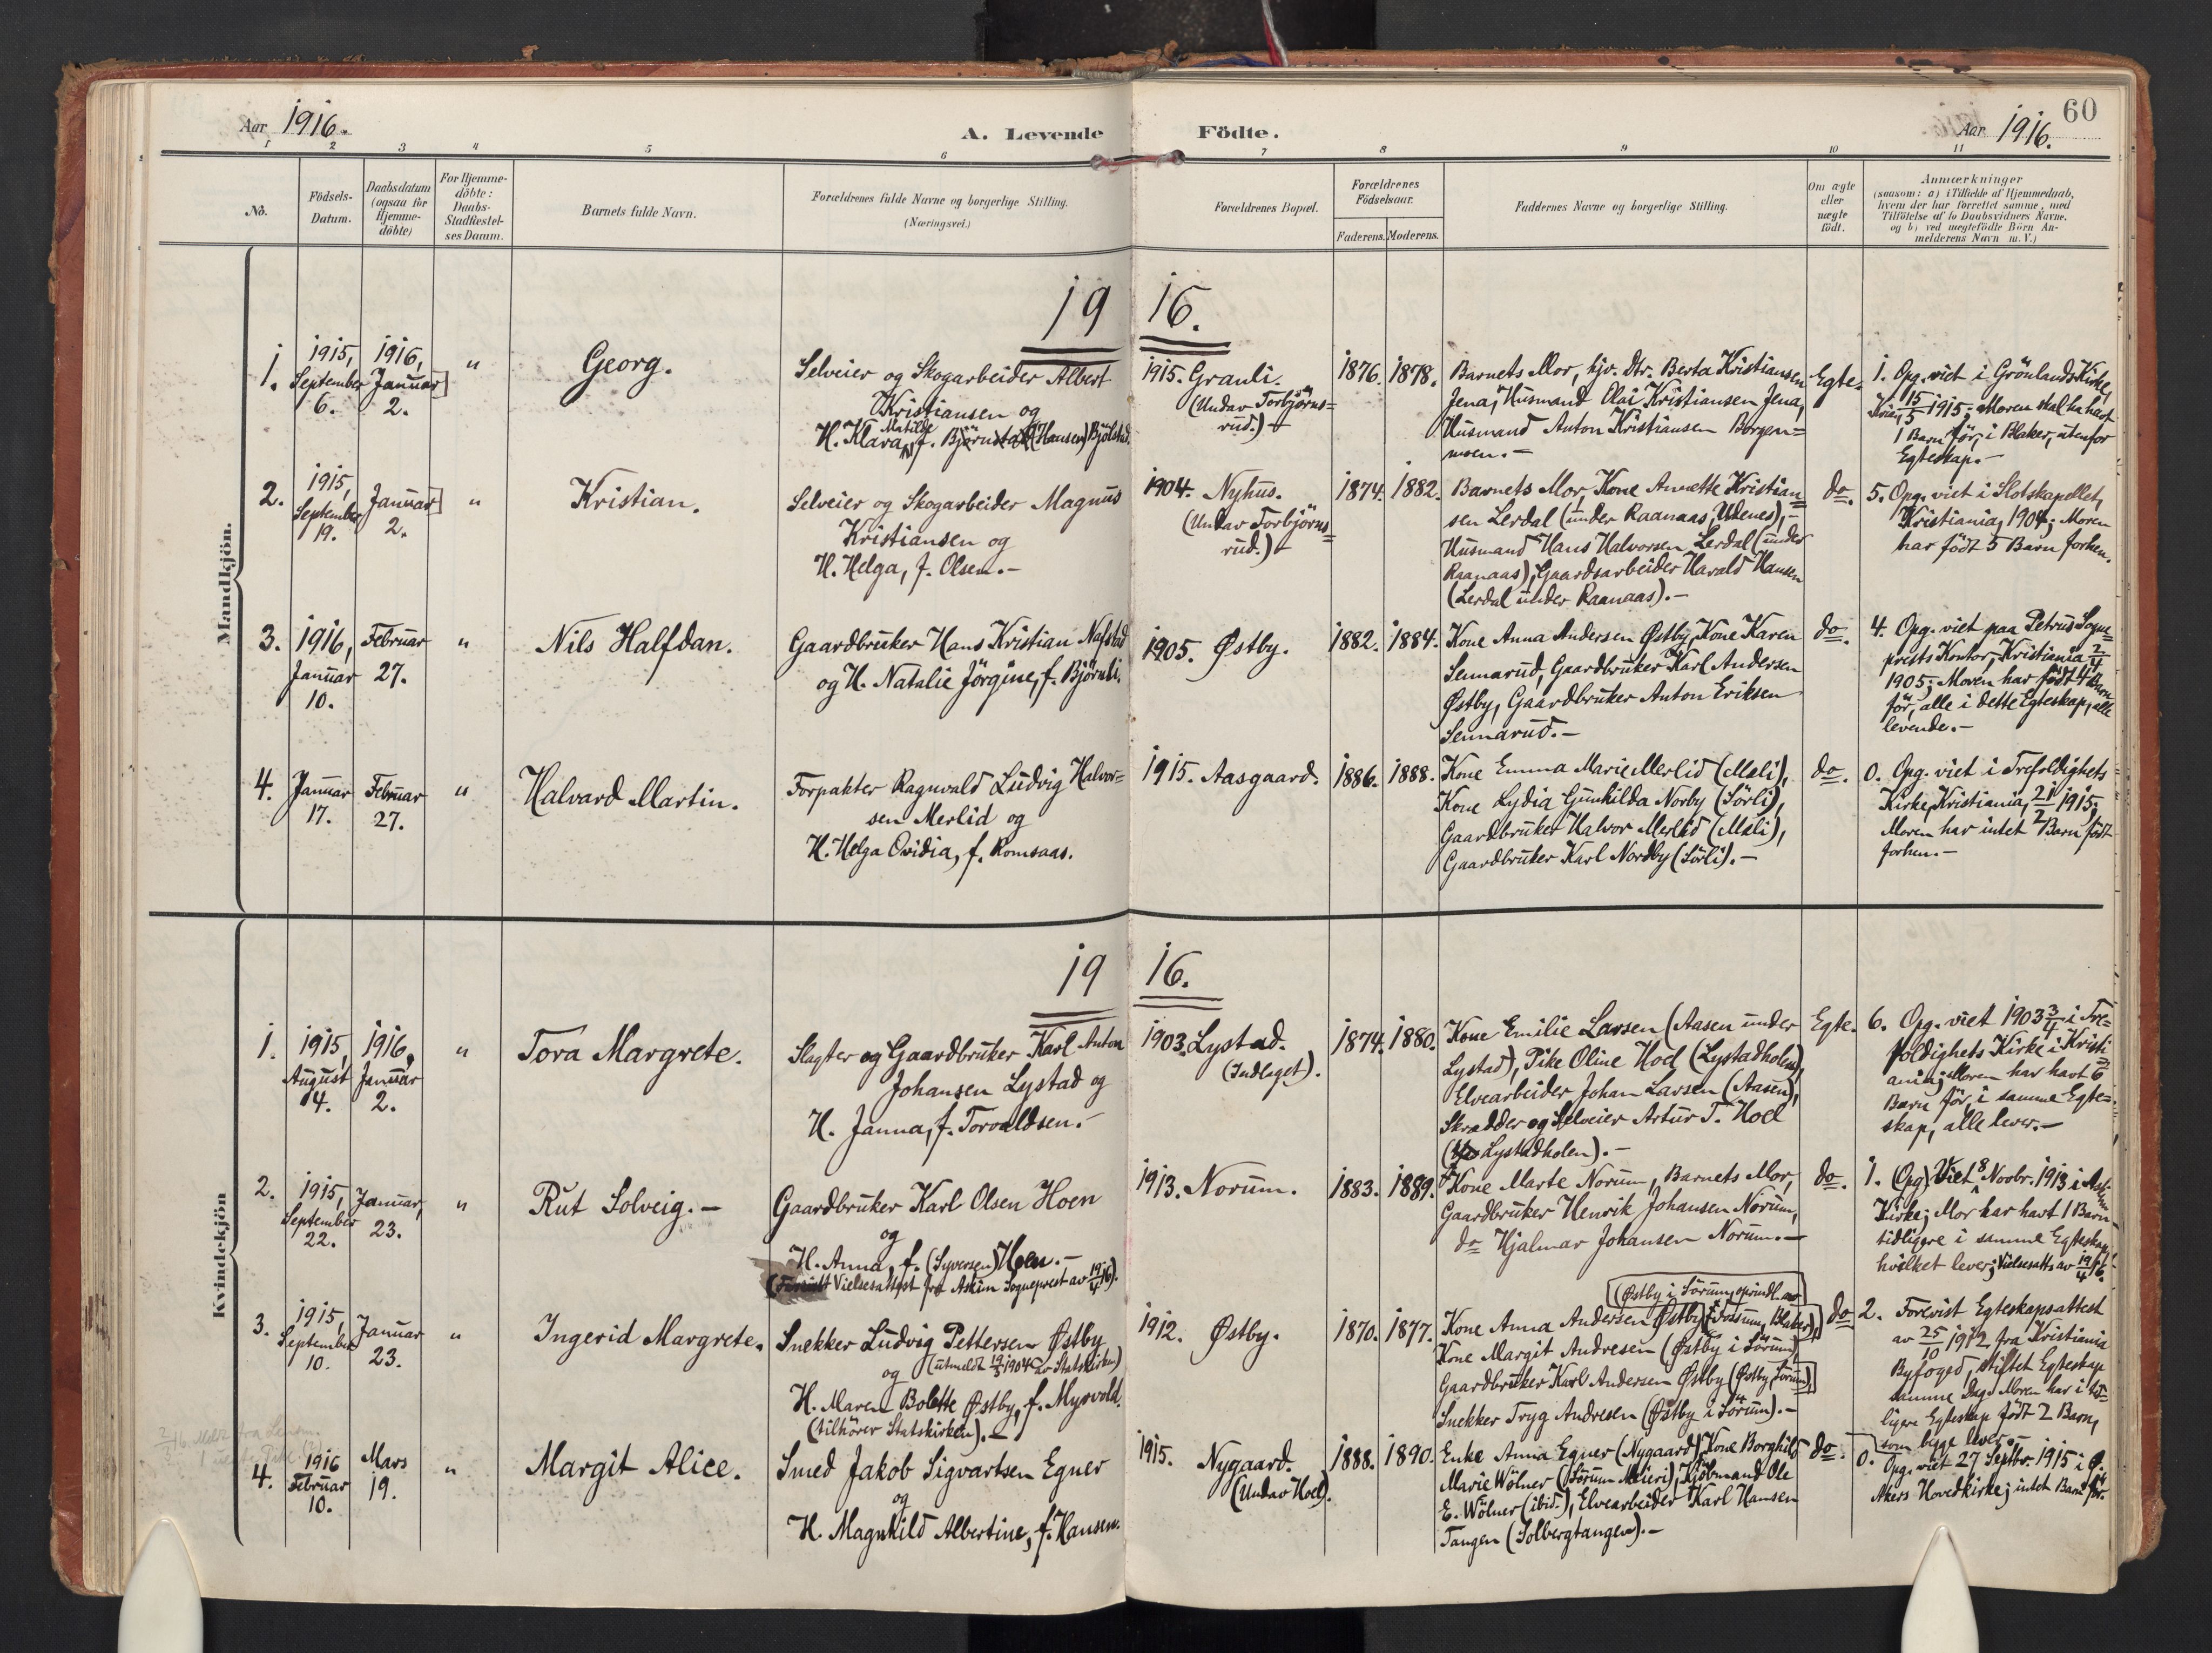 Aar 1916.
A. Levende Födte.
Aar 1916.
60
1 2 3 4 5 6 7 8 9 10 11
No.
Födsels-Datum.
Daabsdatum (ogsaa for Hjemme-döbte)
For Hjemme-döbte: Daabs-Stadfæstel-ses Datum.
Barnets fulde Navn.
Forældrenes fulde Navne og borgerlige Stilling.
(Næringsvei.)
Forældrenes Bopæl.
Forældrenes Födselsaar.
Faderens. Moderens.
Faddernes Navne og borgerlige Stilling.
Om ægte eller uægte födt.
Anmærkninger
(saasom: a) i Tilfælde af Hjemmedaab,
hvem der har forrettet samme, med
Tilföielse af to Daabsvidners Navne.
og b) ved uægtefödte Börn An-
melderens Navn m. V.)
Mandkjön.
1916.
1. 1915, September 6. 1916, Januar 2. " Georg.
Selveier og Skogarbeider Albert
Kristiansen og
H. Klara Matilde, f. Björnstad (Hansen) Bjölstad.
1915. Granli.
(Undav Torbjörns=
rud.) –
1876. 1878.
Barnets Mor, hjv. Dtr. Berta Kristiansen
Jena, Husmand Olai Kristiansen Jena,
Husmand Anton Kristiansen Borgen=
moen. –
Egte.
1. Opg. viet i Grönlands Kirke,
Kria, 15/5 1915; Moren skal ha havt
1 Barn för, i Blaker, utenfor
Egteskap. –
2. 1915, September 19. Januar 2. " Kristian.
Selveier og Skogarbeider Magnus
Kristiansen og
H. Helga, f. Olsen. –
1904. Nyhus.
(Undav Torbjörns=
rud.) –
1874. 1882.
Barnets Mor, Kone Anette Kristian=
sen Lerdal (under Raanaas, Udenes), –
Husmand Hans Halvorsen Lerdal (under
Raanaas), Gaardsarbeider Harald Hansen
(Lerdal under Raanaas). –
do.
5. Opg. viet i Slotskapellet,
Kristiania, 1904; Moren
har födt 5 Barn forhen.
3. 1916, Januar 10. Februar 27. " Nils Halfdan.
Gaardbruker Hans Kristian Nafstad
og H. Natalie Jörgine, f. Björnli.
1905. Østby.
1882. 1884.
Kone Anna Andersen Østby, Kone Karen
Sennarud, Gaardbruker Karl Andersen
Østby, Gaardbruker Anton Eriksen
Sennarud. –
do.
4. Opg. viet paa Petrus Sogne=
prests Kontor, Kristiania 2/4
1905; Moren har födt 4 Barn
för, alle i dette Egteskap, alle
levende. –
4. Januar 17. Februar 27. " Halvard Martin.
Forpakter Ragnvald Ludvig Halvor=
sen Merlid og
H. Helga Ovidia, f. Romsaas.
1915. Aasgaard.
1886. 1888.
Kone Emma Marie Merlid (Mæli),
Kone Lydia Gunhilda Norby (Sörli),
Gaardbruker Halvor Merlid (Mæli),
Gaardbruker Karl Nordby (Sörli). –
do.
0. Opg. viet i Trefoldighets
Kirke, Kristiania, 21/2 1915;
Moren har intet Barn födt
forhen. –
Kvindekjön
1916.
1. 1915, August 4. 1916, Januar 2. " Tora Margrete.
Slagter og Gaardbruker Karl Anton
Johansen Lystad og
H. Janna, f. Torvaldsen. –
1903. Lystad.
(Indlaget).
1874. 1880.
Kone Emilie Larsen (Aasen under
Lystad), Pike Oline Hoel (Lystadholen),
Elvearbeider Johan Larsen (Aasen),
Skrædder og Selveier Artur T. Hoel
(Lystadholen). –
Egte.
6. Opg. viet 1903 3/4 i Tre=
foldighets Kirke i Kristi
ania; Moren har havt 6
Barn för, i samme Egte=
skap, alle lever. –
2. 1915, September 22. Januar, 23. " Rut Solveig. –
Gaardbruker Karl Olsen Hoen
og
H. Anna, f. (Syversen) Hoen. –
Vielsesattest fra Askim Sogneprest av 19/4 16).
1913. Norum.
1883. 1889.
Kone Marte Norum, Barnets Mor,
Gaardbruker Henrik Johansen Norum,
do Hjalmar Johansen Norum. –
do.
1. (Opg) Viet 8 Novbr. 1913 i Askim
Kirke; Mor har havt 1 Barn
tidligere i samme Egteskap,
hvilket lever; Vielsesatts av 19/4 16.
3. 1915, September 10. Januar 23. " Ingerid Margrete.
Snekker Ludvig Pettersen Østby
og (utmeldt 19/3 1904 av Statskirken)
H. Maren Bolette Østby, f. Myrvold.
(tilhörer Statskirken). –
1912. Østby.
1870. 1877.
(Østby i Sörum, oprindl. av
Kone Anna Andersen Østby (Fossum, Blaker),
Kone Margit Andresen (Østby i Sörum)
Gaardbruker Karl Andersen Østby (Østby, Sörum),
Snekker Tryg Andresen (Østby i Sörum). –
do
2. Forevist Egteskapsattest
av 25/10 1912 fra Kristiania
Byfoged, stiftet Egteskap
samme Dag. Moren har i tid=
ligere Egteskap födt 2 Barn,
som begge lever. –
4. 1916 Februar 10. Mars 19. " Margit Alice.
Smed Jakob Sigvartsen Egner
og
H. Magnhild Albertine, f. Hansen.
1915. Nygaard.
(Undav Hoel).
1888. 1890.
Enke Anna Egner (Nygaard), Kone Borghild
Marie Wölner (Sörum Meieri), Kjöbmand Ole
E. Wölner (ibid.), Elvearbeider Karl Hansen
Tangen (Solbergtangen). –
do.
0. Opg. viet 27 Septbr. 1915 i Ø.
Akers Hovedkirke; intet Barn för.